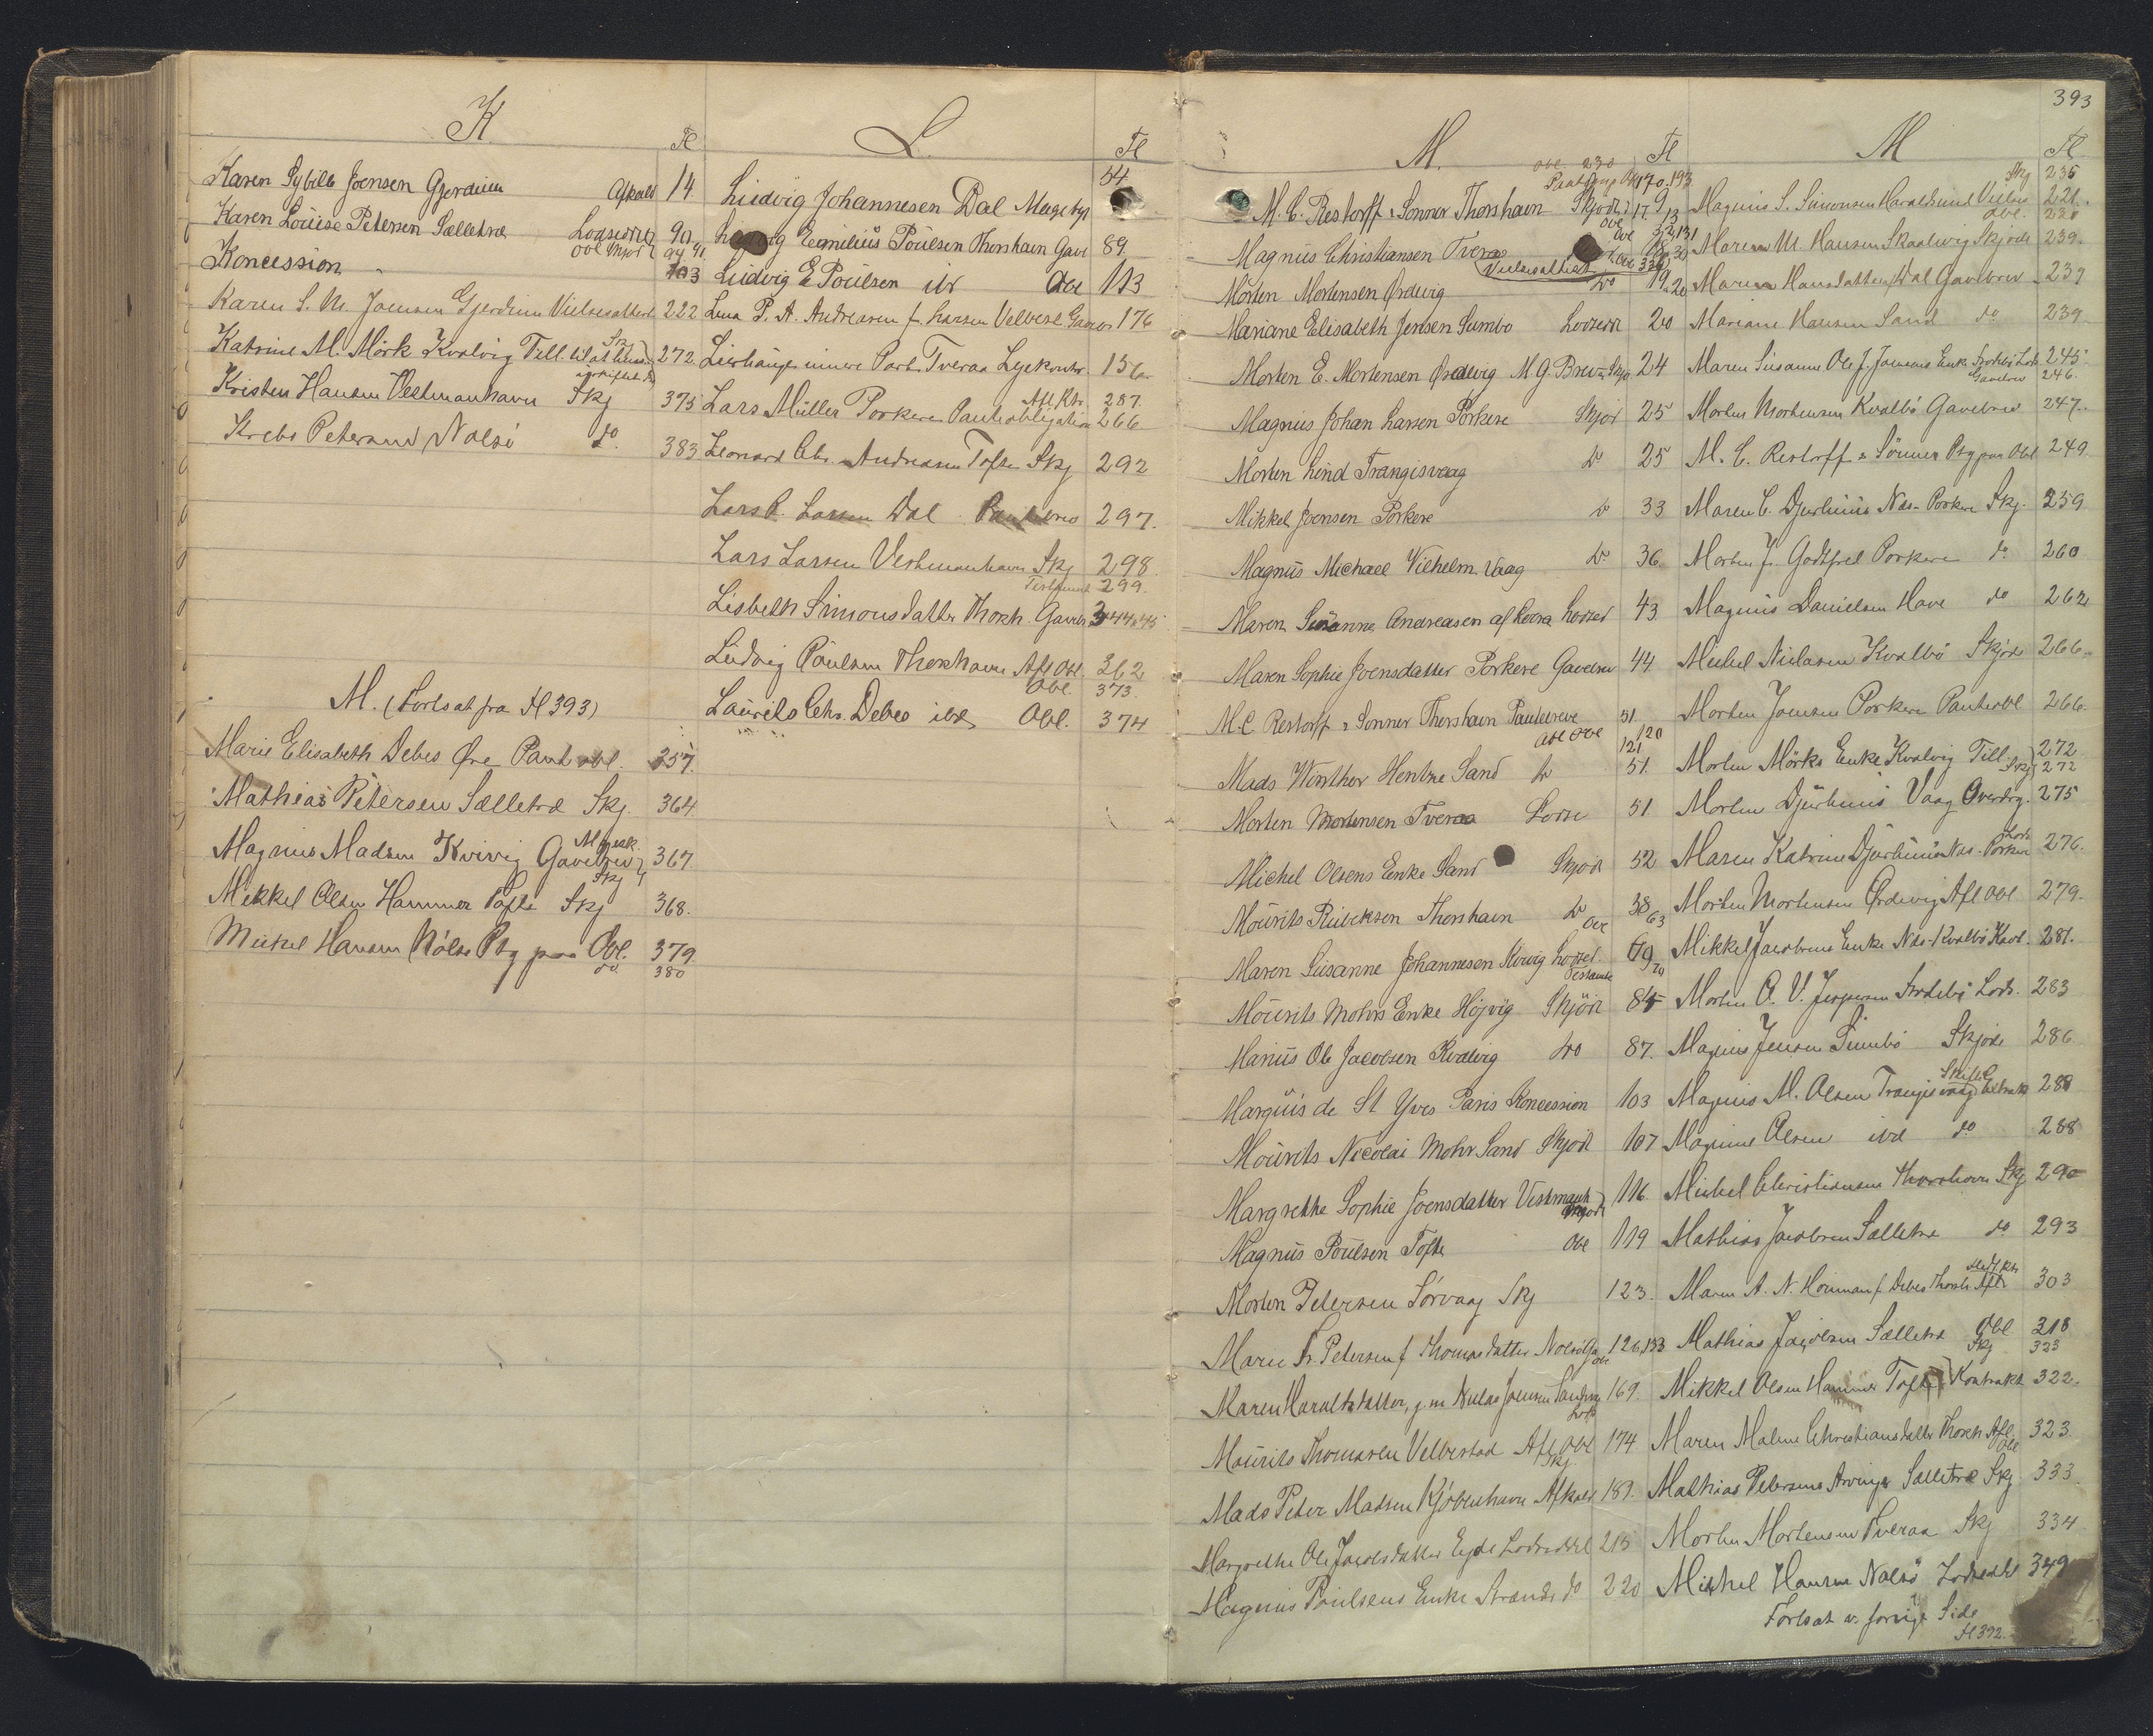 K
Fl
Karen Sybille Joensen Gjerdum Afkald 14
Karen Louise Petersen Selletræ Lodseddel 90
Obl Skjøde 94 91
Koncession 103
Karen S. M. Joensen Gjerdum Vielsesattest 222
Katrine M. Mörk Kvalvig Till. 272
Skj
Kristen Hansen Vestmanhavn Skj 375
Krebs Petersen Nolsö do 383
M. (Fortsat fra Fl 393)
Marie Elisabeth Debes Øre Pantobl. 257
Mathias Petersen Selletræ Skj. 364
Magnus Madsen Kvivig Gavebrev 367
Skj
Mikkel Olsen Hammer Tofte Skj 368.
Mikkel Hansen Nólsø Ptg paa Obl. 379.
do. 380
L.
Fl
54
Ludvig Johannesen Dal
Ludvig Emilius Poulsen Thorshavn Gave 89
Ludvig E Poulsen ib Obl 113
Lena P. A. Andreasen f. Larsen Velbest. 176
156
Lars Müller Porkere Pantobligation 266
Afl Kb. 287.
Leonard Chr. Andreasen Tofte Skj 292
Lars P. Larsen Dal Pantebrev 297.
Lars Larsen Vestmanhavn Skj 298.
Testament 299.
Lisbeth Simonsdatter Thorsh. Gaveb 344 & 45
Ludvig Poulsen Thorshavn Afl Obl. 362
Obl. 373.
Laurits Chr. Debes ibd Obl. 374
M.
Fl
Obl. 230
170. 193
M. C. Restorff & Sönner Thorshavn Skjöde 17
Magnus Christiansen Tveraa
Vielsesattest
Morten Mortensen Ørdevig do 19 & 20
Mariane Elisabeth Jensen Sumbo Lodsedd 20
Morten E. Mortensen Ørdevig M. G. Brev & Skjø 24
Magnus Johan Larsen Porkere Skjöd 25
Morten Lind Trangisvaag do 25
Mikkel Joensen Porkere do 33
Magnus Michael Vilhelm Vaag do 36
Maren Susanne Andreasen af Hvera Lodsed 43
Maren Sophie Joensdatter Porkere Gavebrev 44
M. C. Restorff & Sonner Thorshavn Pantebreve 51
Obl Obl 120
121
Mads Winther Hentze Sand do 51
Morten Mortensen Tveraa Lodse 51
Michel Olsens Enke Sand Skjöde 52
Mourits Rubeksen Thorshavn do 38
Obl 63
Maren Susanne Johannesen Kvivig Lodsed. 69
Testamte 70
Mourits Mohrs Enke Höjvig Skjöde 85
Marius Ole Jacobsen Kvalvig do 87.
Marquis de St Yves Paris Koncession 103
Mourits Nicolai Mohr Sand Skjöd 107
Margrethe Sophie Joensdatter Vestmanh 116
Skjöde
Magnus Poulsen Tofte Obl 119
Morten Petersen Sörvaag Skj 123.
Maren Fr. Petersen f. Thomasdatter Nolsö 126, 133
Maren Haraldsdatter, g. m. Niclas Joensen 169.
Mourits Thomasen Velbestad Afl Obl 174
Skj
Mads Peter Madsen Kjöbenhavn Afkald 189.
Margrethe Ole Jacobsdatter Eyde Lodseddel 215
Magnus Poulsens Enke Strende do 220
393
M
Fl
Skj 235
Magnus S. Simonsen Haraldssund Vielses 221.
Obl. 230
Maren M. Hansen Skaalevig Skjöde 239.
Maren Hansdatter Dal Gavebrev 239
Mariane Hansen Sand do 239
Maren Susanne Ole J. Joensens Enke 245
Gavebrev 246.
Morten Mortensen Kvalbö Gavebrev 247.
M. C. Restorff & Sönner Ptg paa Obl 249.
Maren C. Djurhuus Næs - Porkere Skj. 259
Morten J. Godtfred Porkere do 260
Magnus Danielsen Hove do 262
Michel Niclasen Kvalbö Skjöde 266
Morten Joensen Porkere Pantobl 266.
Morten Mörks Enke Kvalvig Till. 272
Skj 272
Morten Djurhuus Vaag Overdrg. 275
Maren Katrine Djurhuus Næs - Porkere 276.
Morten Mortensen Ørdevig Afl Obl 279.
Mikkel Jacobsens Enke Næs - Kvalbö 281.
Morten O. V. Jespersen Lods. 283
Magnus Jensen Sumbö Skjöde 286
Magnus M. Olsen Trangisvaag 288
Skifte
Magnus Olsen ibd do 288
Michel Christiansen Thorshavn Skj 290
Mathias Jacobsen Selletræ do 293
Maren A. N. f. Debes Thorsh. 303
Mathias Jacobsen Selletræ Obl 318
Skj 323
Mikkel Olsen Hammer Tofte Kontrakt 322.
Maren Malene Christiansdatter Thorsh Afl 323
Obl
Mathias Petersens Arvinger Selletræ Skj 333.
Morten Mortensen Tveraa Skj 334
Mikkel Hansen Nolsö Lodseddel 349
Fortsat v. forrige Side
Fl 392.